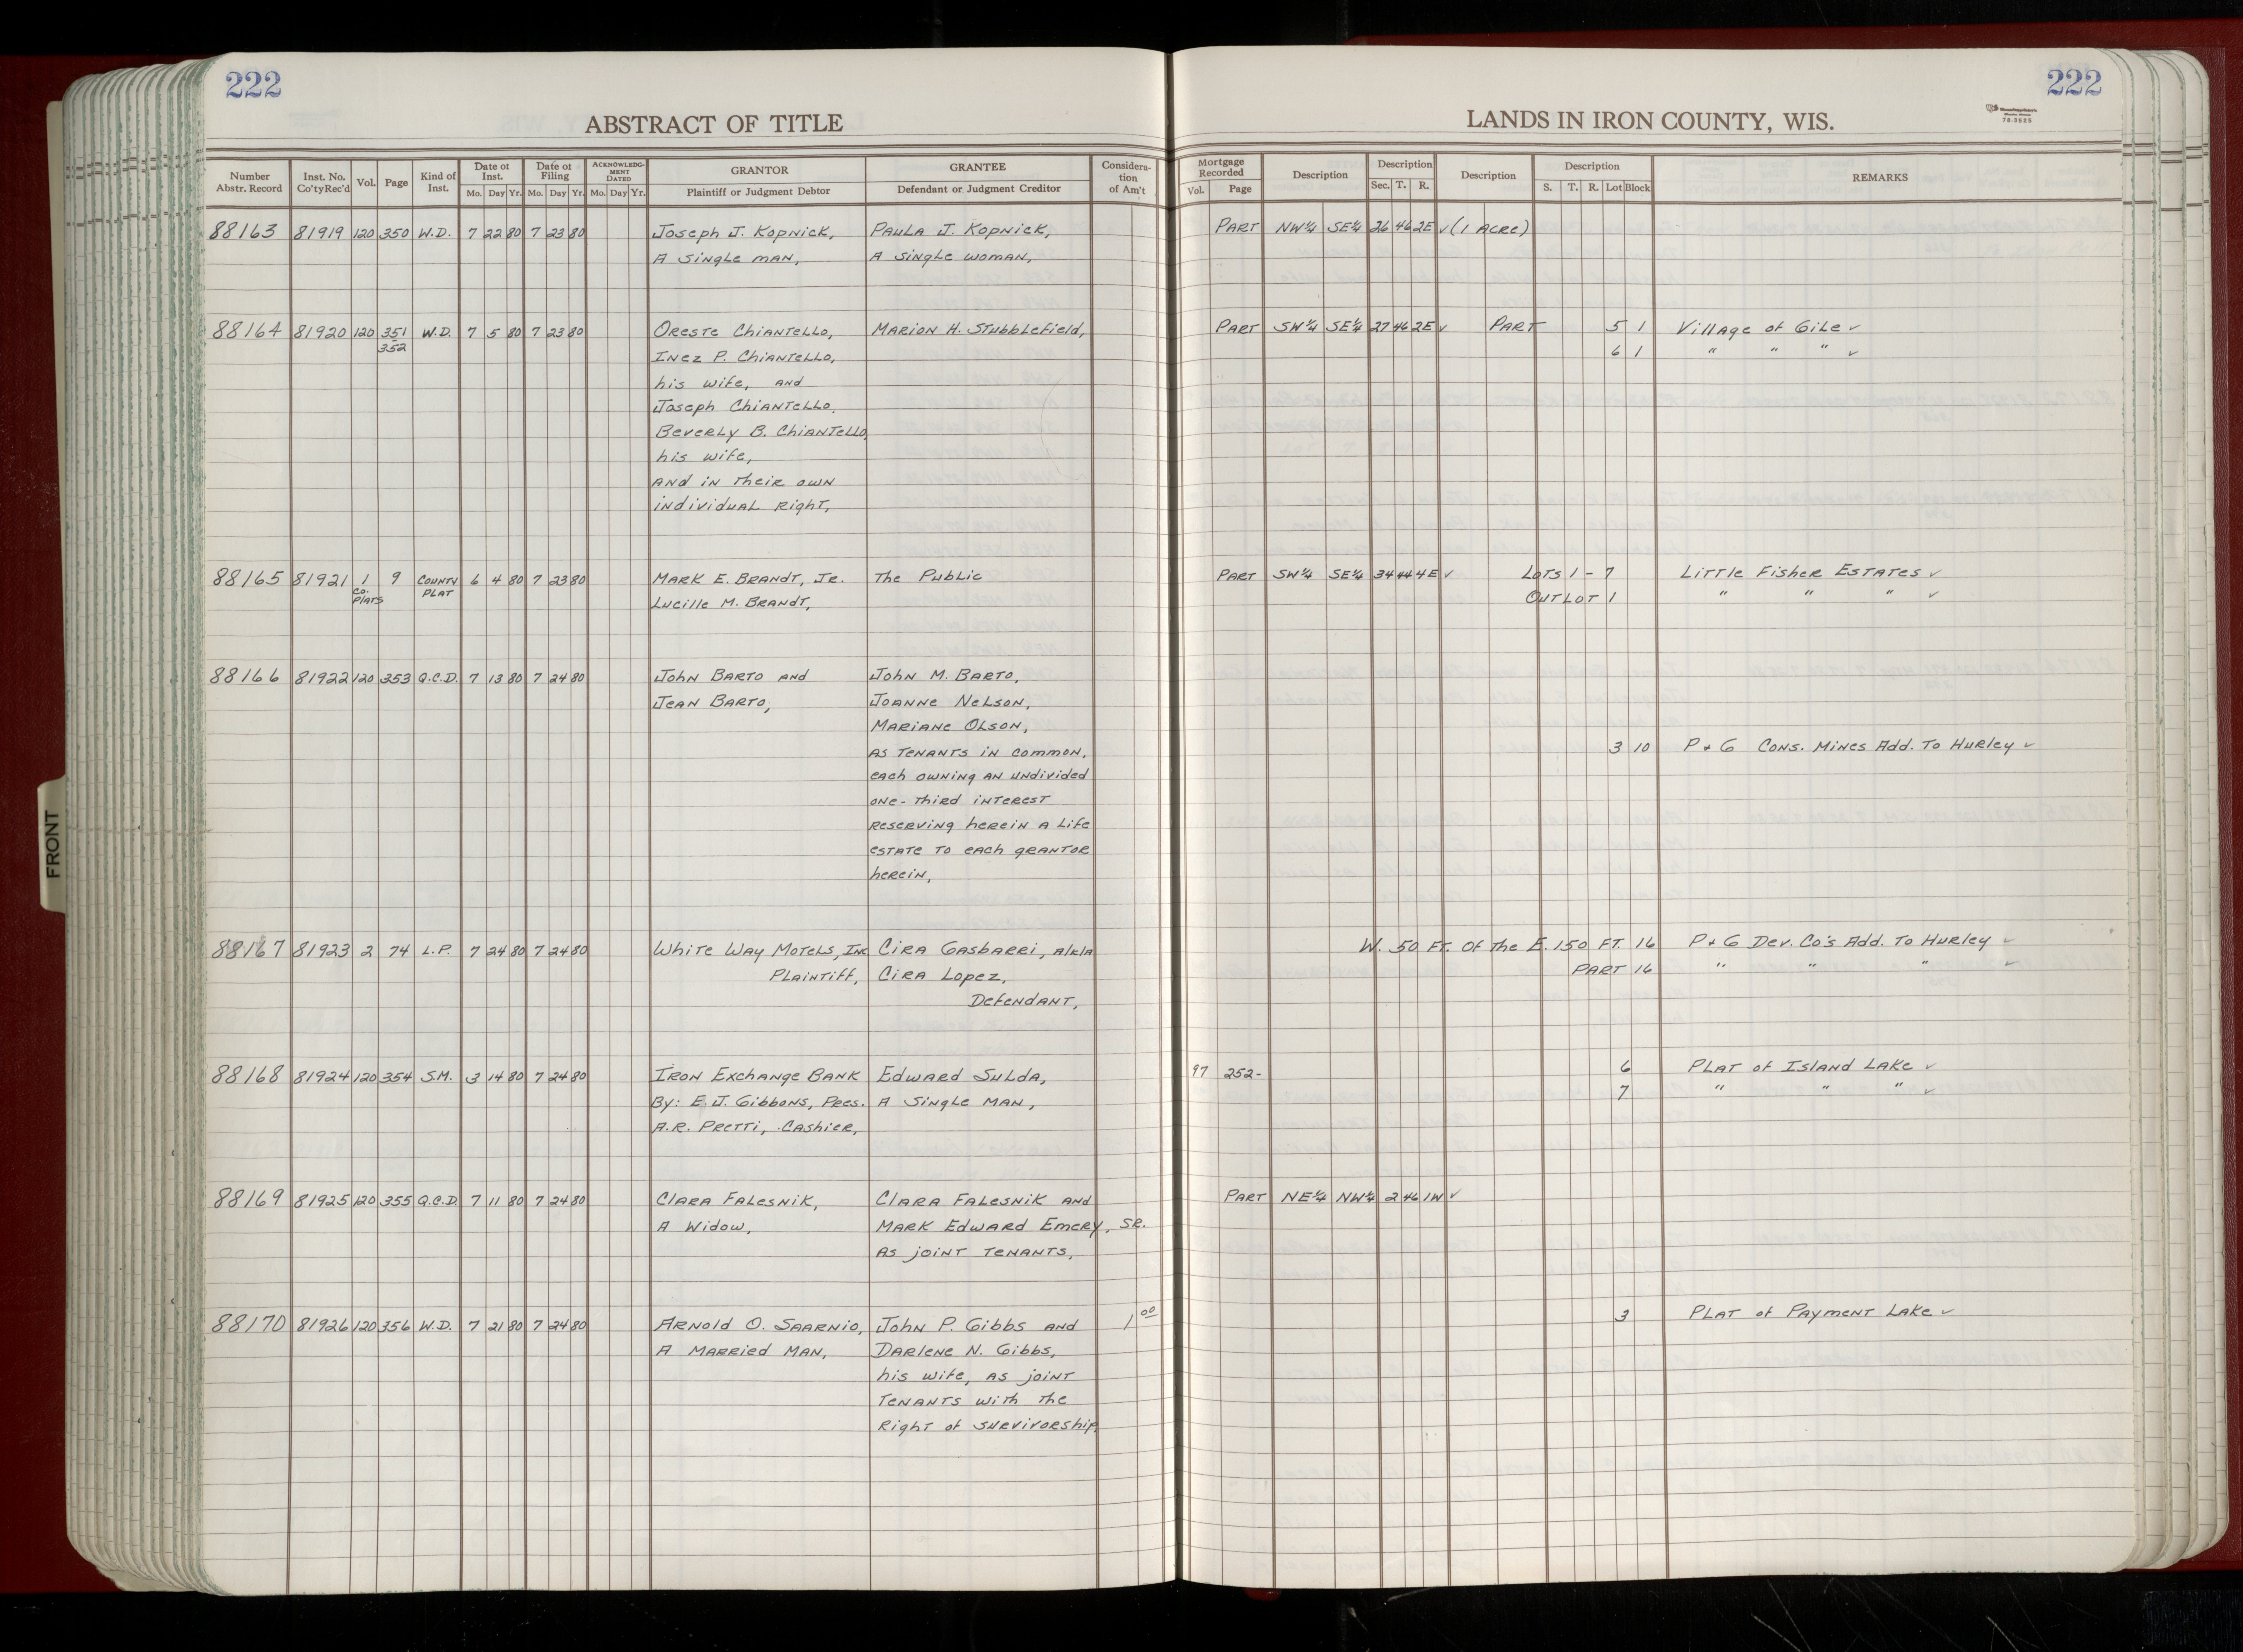 222
222
ABSTRACT OF TITLE
LANDS IN IRON COUNTY, WIS.
78-3525
Number Abstr. Record | Inst. No. Co'ty Rec'd | Vol. | Page | Kind of Inst. | Date of Inst. Mo. Day Yr. | Date of Filing Mo. Day Yr. | ACKNOWLEDGMENT DATED Mo. Day Yr. | GRANTOR Plaintiff or Judgment Debtor | GRANTEE Defendant or Judgment Creditor | Consideration of Am't | Mortgage Recorded Vol. Page | Description | Description Sec. T. R. | Description | Description S. T. R. Lot Block | REMARKS
88163 81919 120 350 W.D. 7 22 80 7 23 80 Joseph J. Kopnick, Paula J. Kopnick, Part NW¼ SE¼ 26 46 2E ✓ (1 Acre)
A single man, A single woman,
88164 81920 120 351 W.D. 7 5 80 7 23 80 Oreste Chiantello, Marion H. Stubblefield, Part SW¼ SE¼ 27 46 2E ✓ Part 5 1 Village of Gile ✓
352 Inez P. Chiantello, 6 1 " " " ✓
his wife, and
Joseph Chiantello,
Beverly B. Chiantello,
his wife,
and in their own
individual right,
88165 81921 1 9 County 6 4 80 7 23 80 Mark E. Brandt, Jr. The Public Part SW¼ SE¼ 34 44 4E ✓ Lots 1 - 7 Little Fisher Estates ✓
Co. Plats Plat Lucille M. Brandt, Outlot 1 " " " ✓
88166 81922 120 353 Q.C.D. 7 13 80 7 24 80 John Barto and John M. Barto,
Jean Barto, Joanne Nelson,
Mariane Olson,
as tenants in common, 3 10 P & G Cons. Mines Add. To Hurley ✓
each owning an undivided
one-third interest
reserving herein a life
estate to each grantor
herein,
88167 81923 2 74 L.P. 7 24 80 7 24 80 White Way Motels, Inc. Cira Gasbarri, a/k/a W. 50 Ft. Of the E. 150 Ft. 16 P & G Dev. Co's Add. To Hurley ✓
Plaintiff, Cira Lopez, Part 16 " " " ✓
Defendant,
88168 81924 120 354 S.M. 3 14 80 7 24 80 Iron Exchange Bank Edward Sulda, 97 252- 6 Plat of Island Lake ✓
By: E. J. Gibbons, Pres. A single man, 7 " " " ✓
A.R. Pretti, Cashier,
88169 81925 120 355 Q.C.D. 7 11 80 7 24 80 Clara Falesnik, Clara Falesnik and Part NE¼ NW¼ 2 46 1W ✓
A Widow, Mark Edward Emery, Sr.
as joint tenants,
88170 81926 120 356 W.D. 7 21 80 7 24 80 Arnold O. Saarnio, John P. Gibbs and 1 00 3 Plat of Payment Lake ✓
A married man, Darlene N. Gibbs,
his wife, as joint
tenants with the
right of survivorship,
FRONT